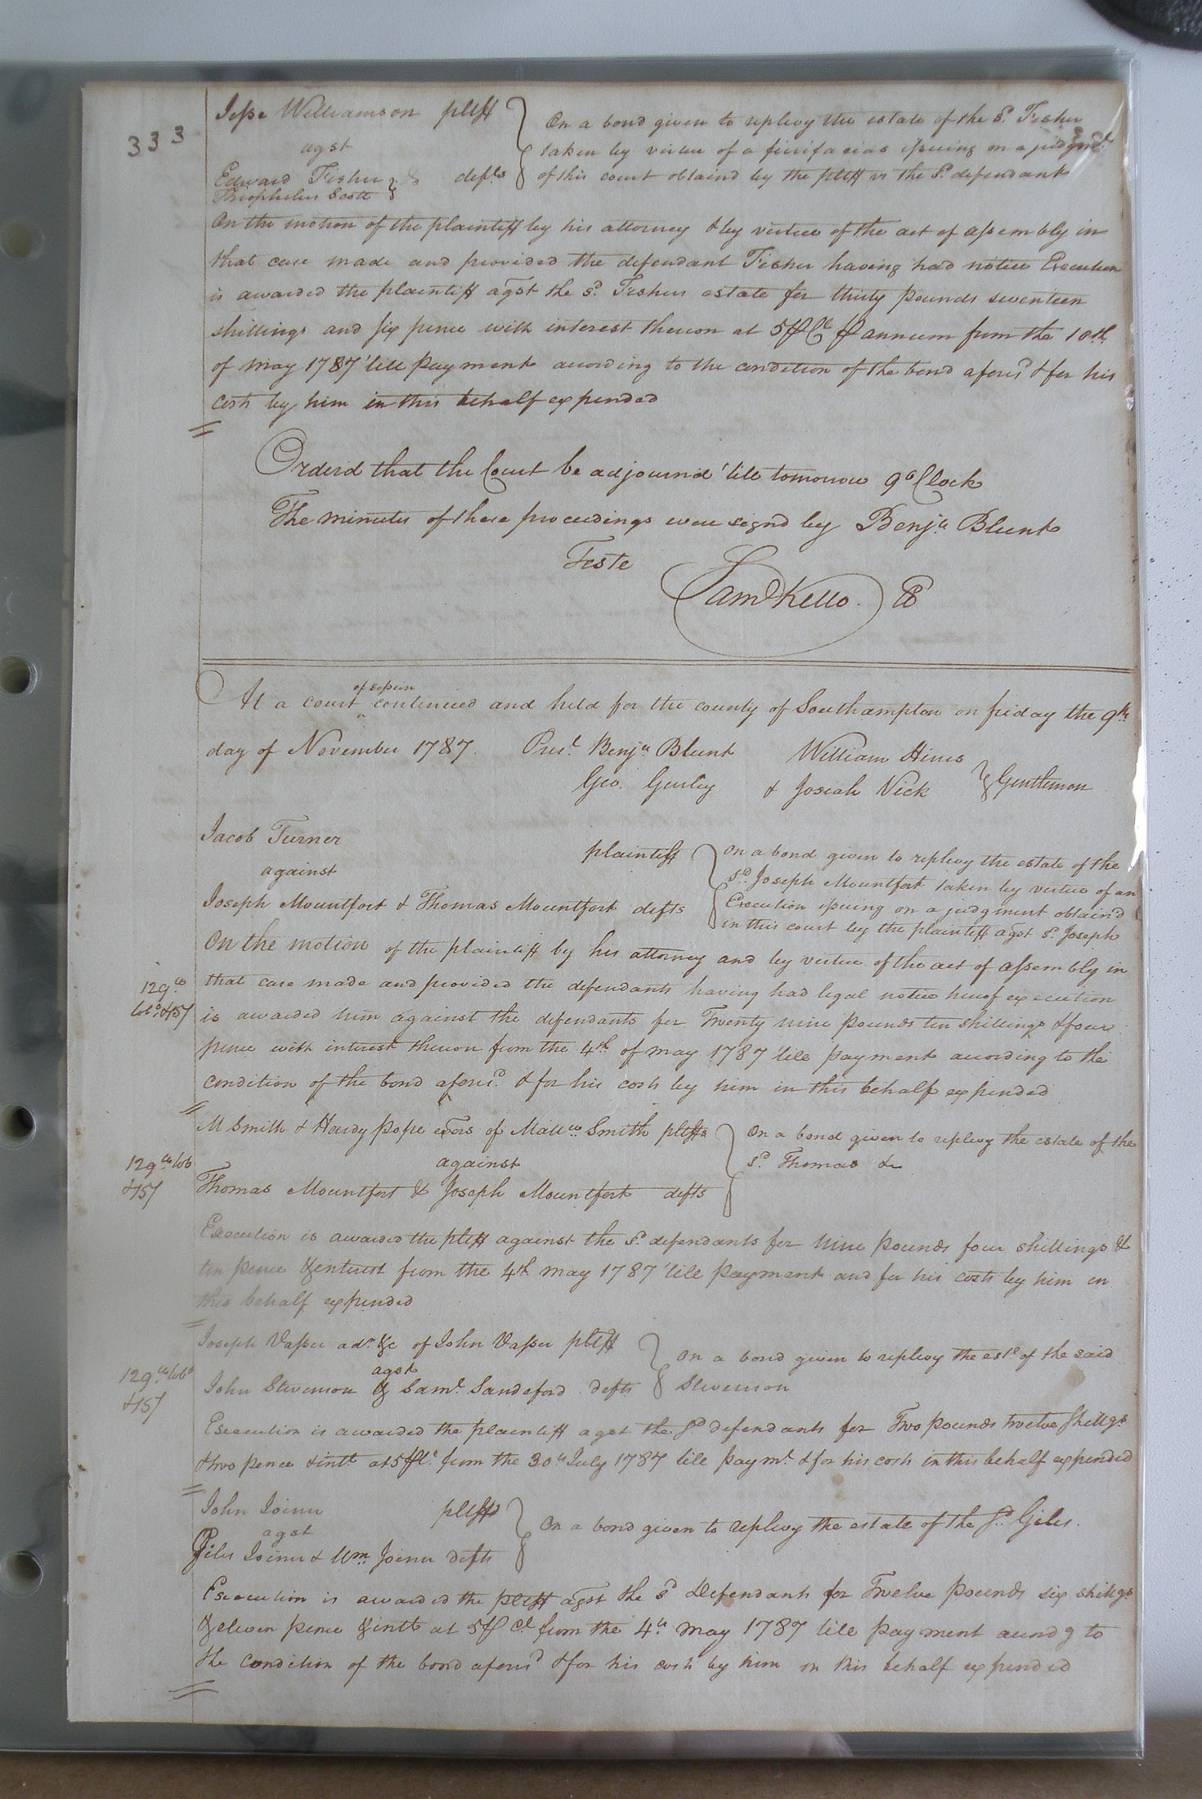 333
Jesse Williamson pltff
agst
Edward Fisher & defts
Theophelus Scott
On a bond given to replevy the estate of the sd. Fisher
taken by virtue of a fierifacias issuing on a judgmt.
of this court obtaind by the pltff vs the sd. defendant
On the motion of the plaintiff by his attorney & by virtue of the act of assembly in
that case made and provided the defendant Fisher having had notice Execution
is awarded the plaintiff agst the sd. Fishers estate for thirty pounds seventeen
shillings and six pence with interest thereon at 5 ⅌ Ct ⅌ annum from the 10th
of may 1787 'till payment acording to the condition of the bond aforesd & for his
costs by him in this behalf expended
Orderd that the Court be adjournd 'till tomorrow 9 o Clock
The minutes of these proceedings were signd by Benja. Blunt
Teste
Saml Kello. CC
At a court of sessien continued and held for the county of Southampton on friday the 9th
day of November 1787. Prest. Benja Blunt William Hines
Geo. Gurley & Josiah Vick Gentlemen
Jacob Turner plaintiff
against
Joseph Mountfort & Thomas Mountfort defts
On a bond given to replevy the estate of the
sd. Joseph Mountfort taken by virtue of an
Execution issuing on a judgment obtaind
in this court by the plaintiff agst sd. Joseph
On the motion of the plaintiff by his attorney and by virtue of the act of assembly in
that case made and provided the defendants having had legal notice hereof execution
129 &157
is awarded him against the defendants for Twenty nine pounds ten shillings & four
pence with interest thereon from the 4th of may 1787 'till payment acording to the
condition of the bond aforesd. & for his costs by him in this behalf expended
M Smith & Hardy Pope exors of Mattw Smith pltffs
against
Thomas Mountfort & Joseph Mountfort defts
On a bond given to replevy the estate of the
sd. Thomas &c
129 &157
Execution is awarded the pltff against the sd. defendants for Nine pounds four shillings &
ten pence & interest from the 4th may 1787 'till payment and for his costs by him in
this behalf expended
Joseph Vasser adr. &c of John Vasser pltff
agst
John Stevenson & Saml. Sandeford defts
On a bond given to replevy the este of the said
Stevenson
129 &157
Execution is awarded the plaintiff agst the sd defendants for Two pounds twelve shillgs
& two pence & intt at 5 ⅌ Ct from the 30th July 1787 till paymt. & for his costs in this behalf expended
John Joiner pltff
agst
Giles Joiner & Wm. Joiner defts
On a bond given to replevy the estate of the sd. Giles.
Execution is awarded the pltff agst the sd Defendants for Twelve pounds six shillgs
& eleven pence & intt at 5 ⅌ Ct from the 4th may 1787 till payment acordg to
the condition of the bond aforesd & for his costs by him in this behalf expended